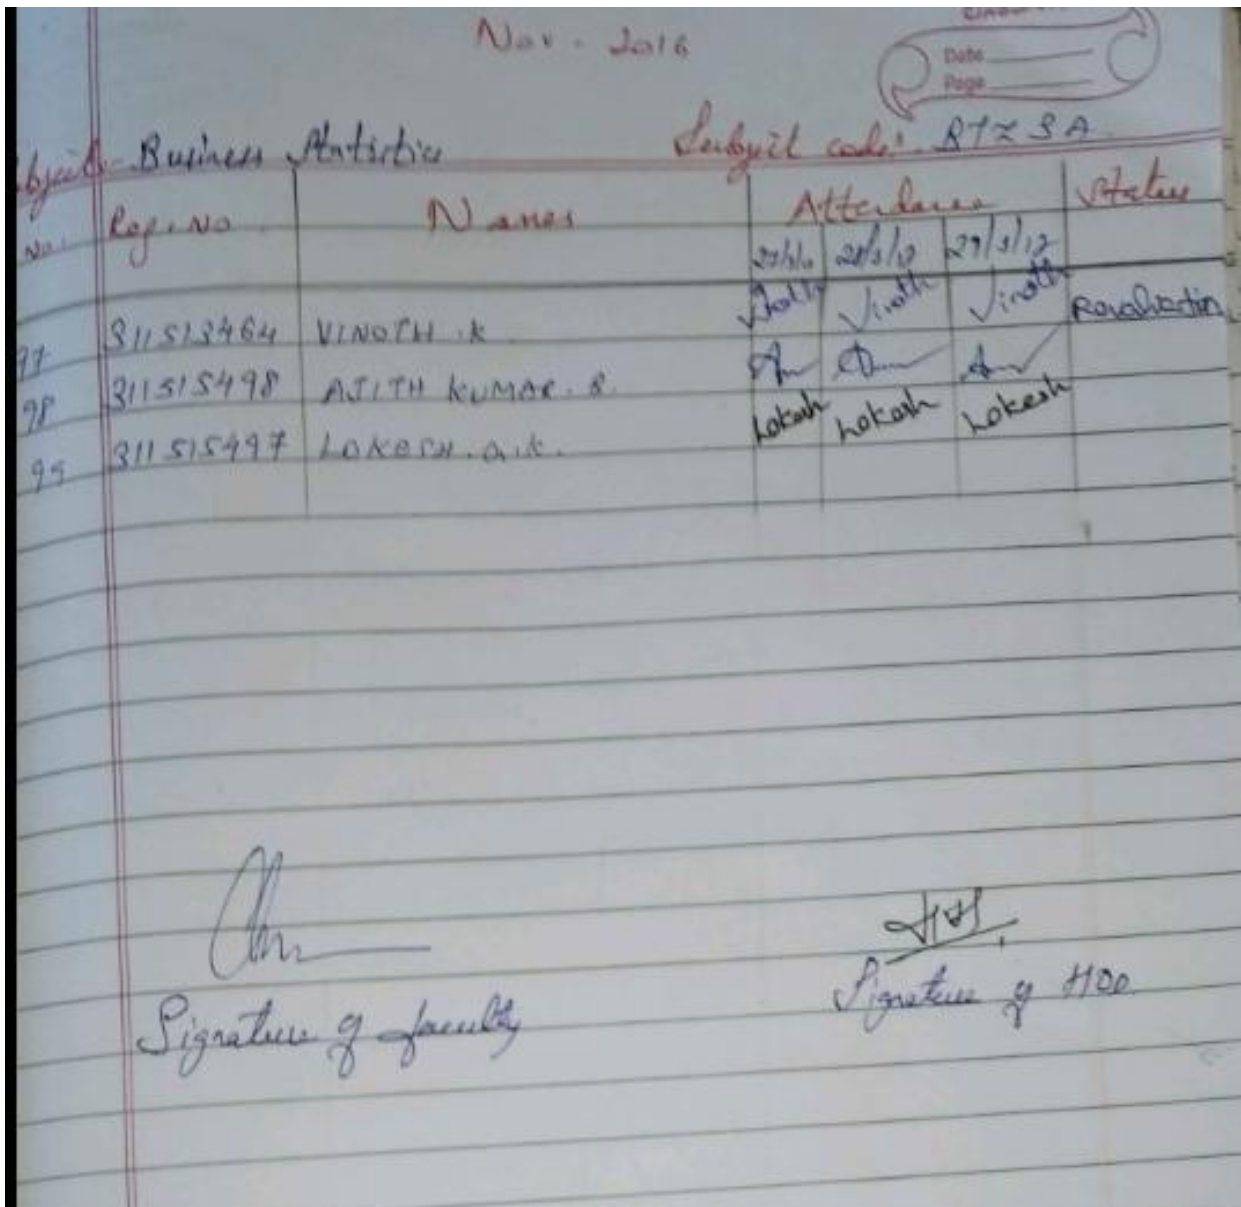 Nov - 2016
Date
Page
bject:- Business Statistics Subject code:- BTZ3A
No. Reg. No Names Attendance Status
28/3/17 29/3/17
97 311513464 VINOTH .K Vinoth Vinoth Vinoth Revaluation
98 311515498 AJITH KUMAR. S
99 311515497 LOKESH. G.K. Lokesh Lokesh Lokesh
Signature of faculty Signature of HOD